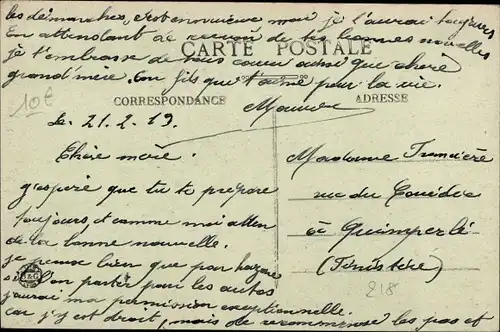 les démarches, c'est ennuyeux mai je l'aurai toujours
En attendant de recevoir de tes bonnes nouvelles
je t'embrasse de tout coeur ainsi que chère
CARTE POSTALE
grand'mère. Ton fils qui t'aime pour la vie.
Maurice
CORRESPONDANCE
ADRESSE
10€
Le. 21.2.19.
Chère mère.
j'espère que tu te prépare
toujours et comme moi atten
de la bonne nouvelle.
je pense bien que par hazard
si l'on partez pour les autos
j'aurai ma permission exceptionnelle.
car j'y est droit, mais de recommencer les pas et
Madame
rue du Couëdic
à Quimperlé
(Finistère)
218